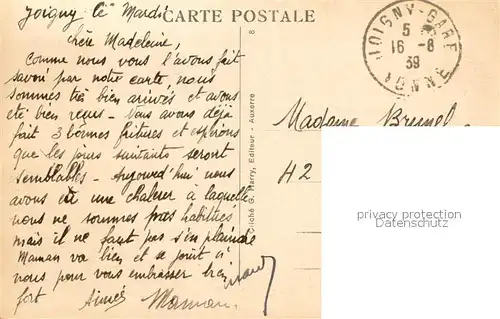 Joigny le Mardi
CARTE POSTALE
chère Madeleine,
Comme nous vous l'avons fait
savoir par notre carte, nous
sommes très bien arrivés et avons
été bien reçus - Nous avons déjà
fait 3 bonnes fritures et espérons
que les jours suivants seront
semblables - aujourd'hui nous
avons eu une chaleur à laquelle
nous ne sommes pas habitués
mais il ne faut pas s'en plaindre
Maman va bien et se joint à
nous pour vous embrasser bien
fort
Aimée Maman
8
Cliché G. Harry, Editeur - Auxerre
JOIGNY-GARE
5
16 -8
39
YONNE
Madame Brunel
H2
privacy protection
Datenschutz